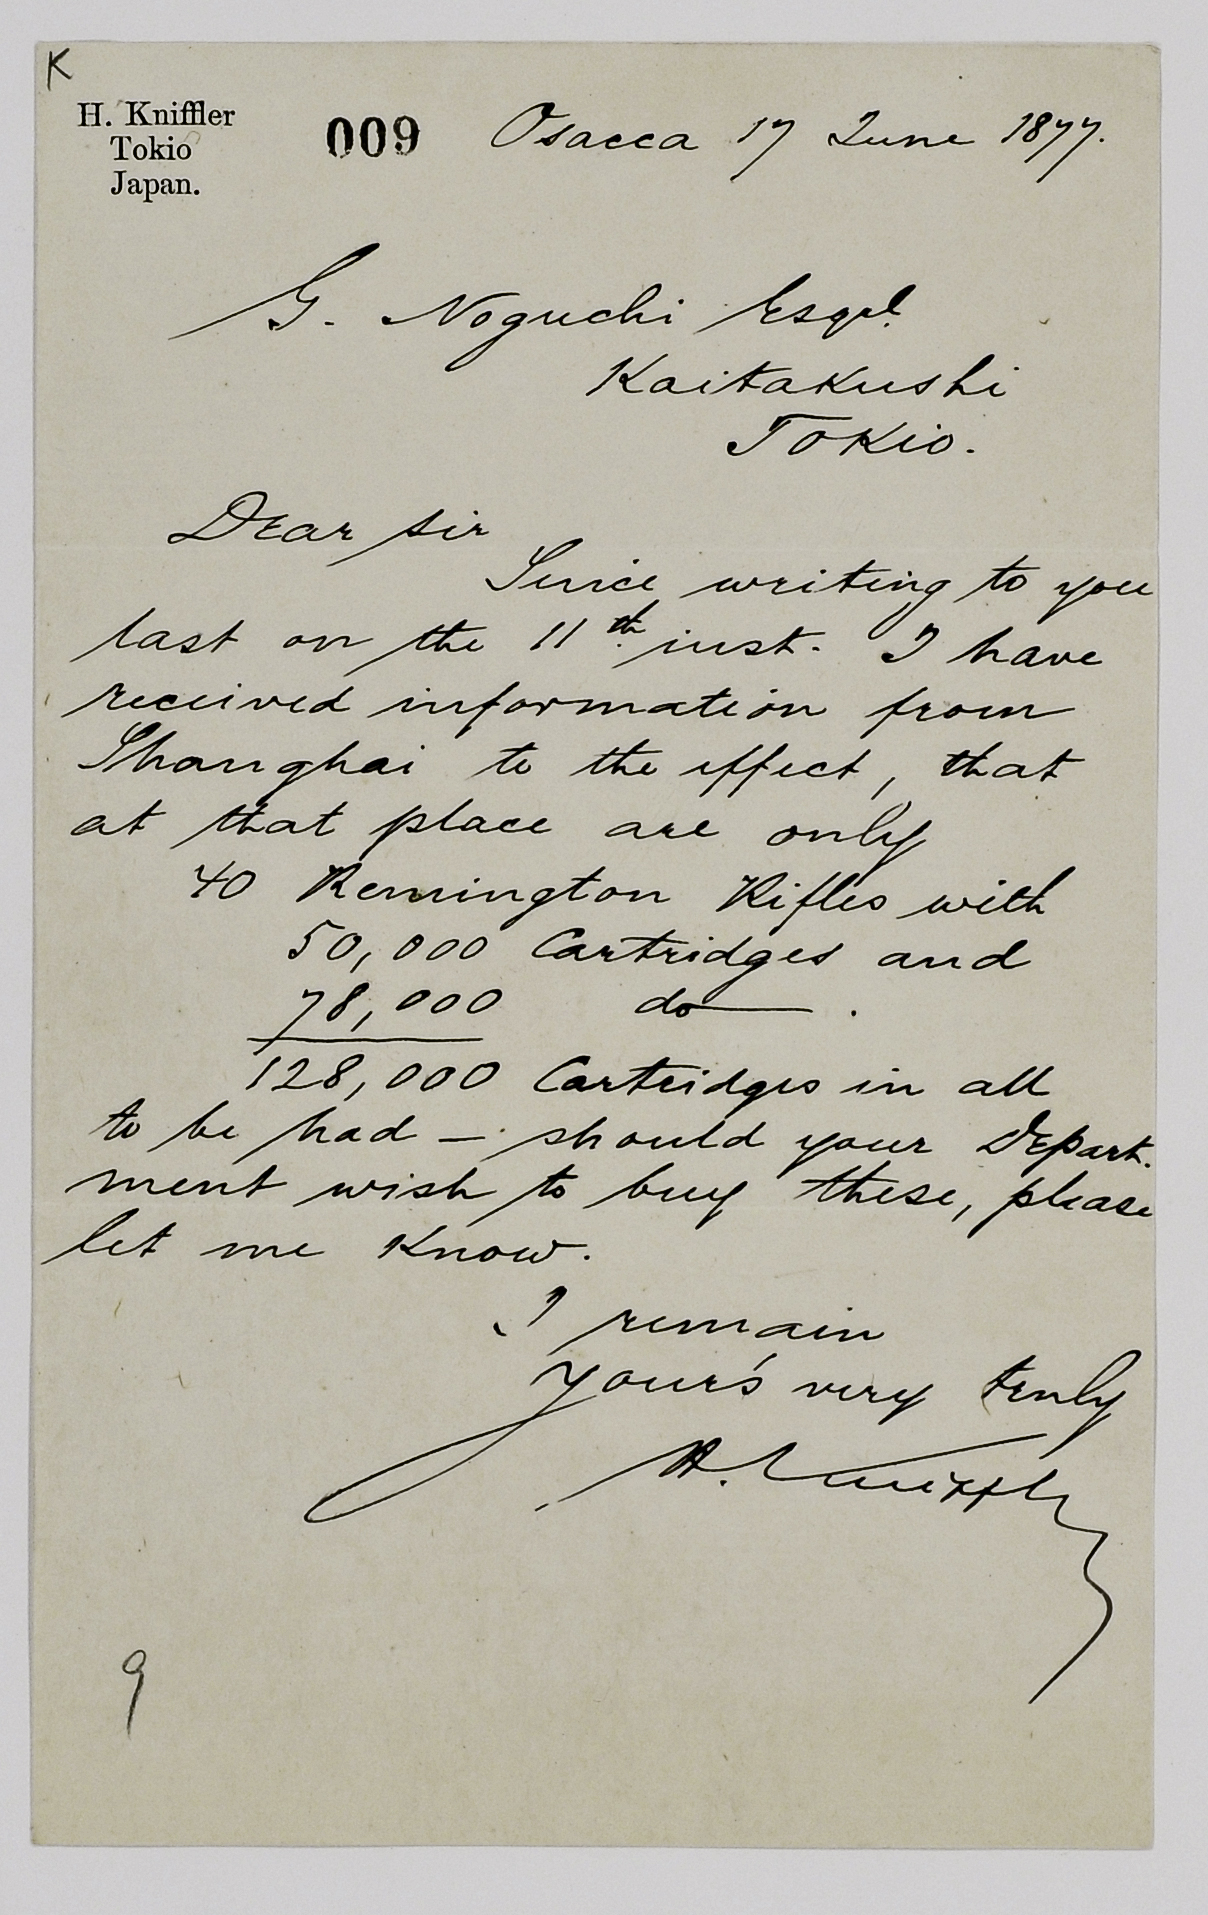 K
H. Kniffler
Tokio
Japan.
009
Osacca 17 June 1877.
G. Noguchi Esqre.
Kaitakushi
Tokio.
Dear Sir
Since writing to you
last on the 11th inst. I have
received information from
Shanghai to the effect, that
at that place are only
40 Remington Rifles with
50,000 Cartridges and
78,000 do .
128,000 Cartridges in all
to be had – should your Depart-
ment wish to buy these, please
let me know.
I remain
your's very truly
H. Kniffler
9